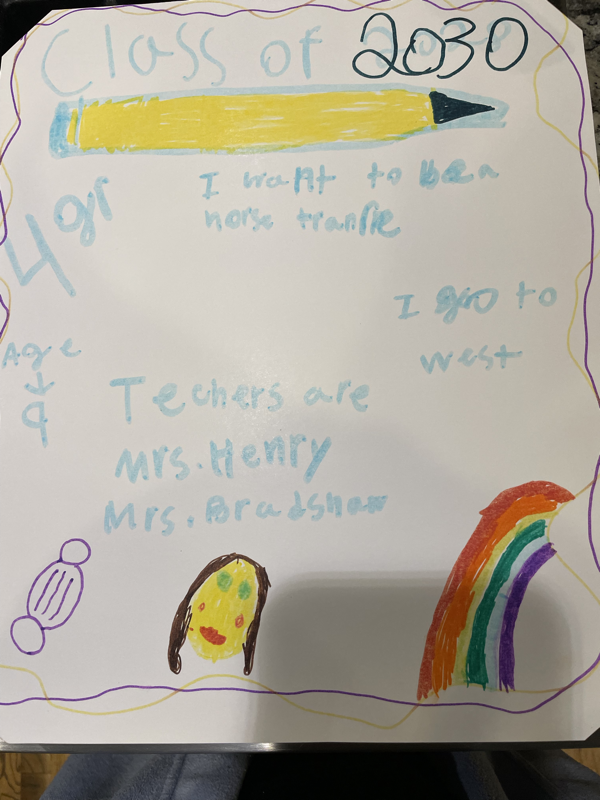 Class of 2030
I want to be a
norse tranire
4 gr
I go to
west
Age
9
Techers are
Mrs. Henry
Mrs. Bradshaw